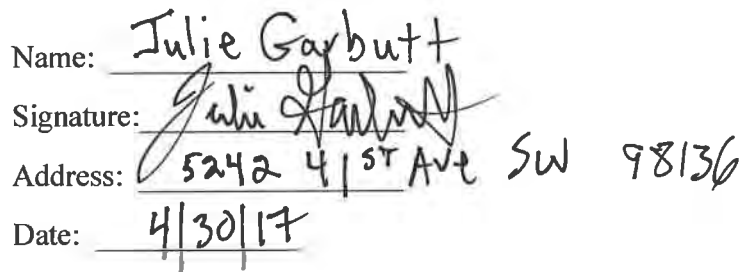 Name: Julie Garbutt
Signature: Julie Garbutt
Address: 5242 41ST Ave SW 98136
Date: 4/30/17